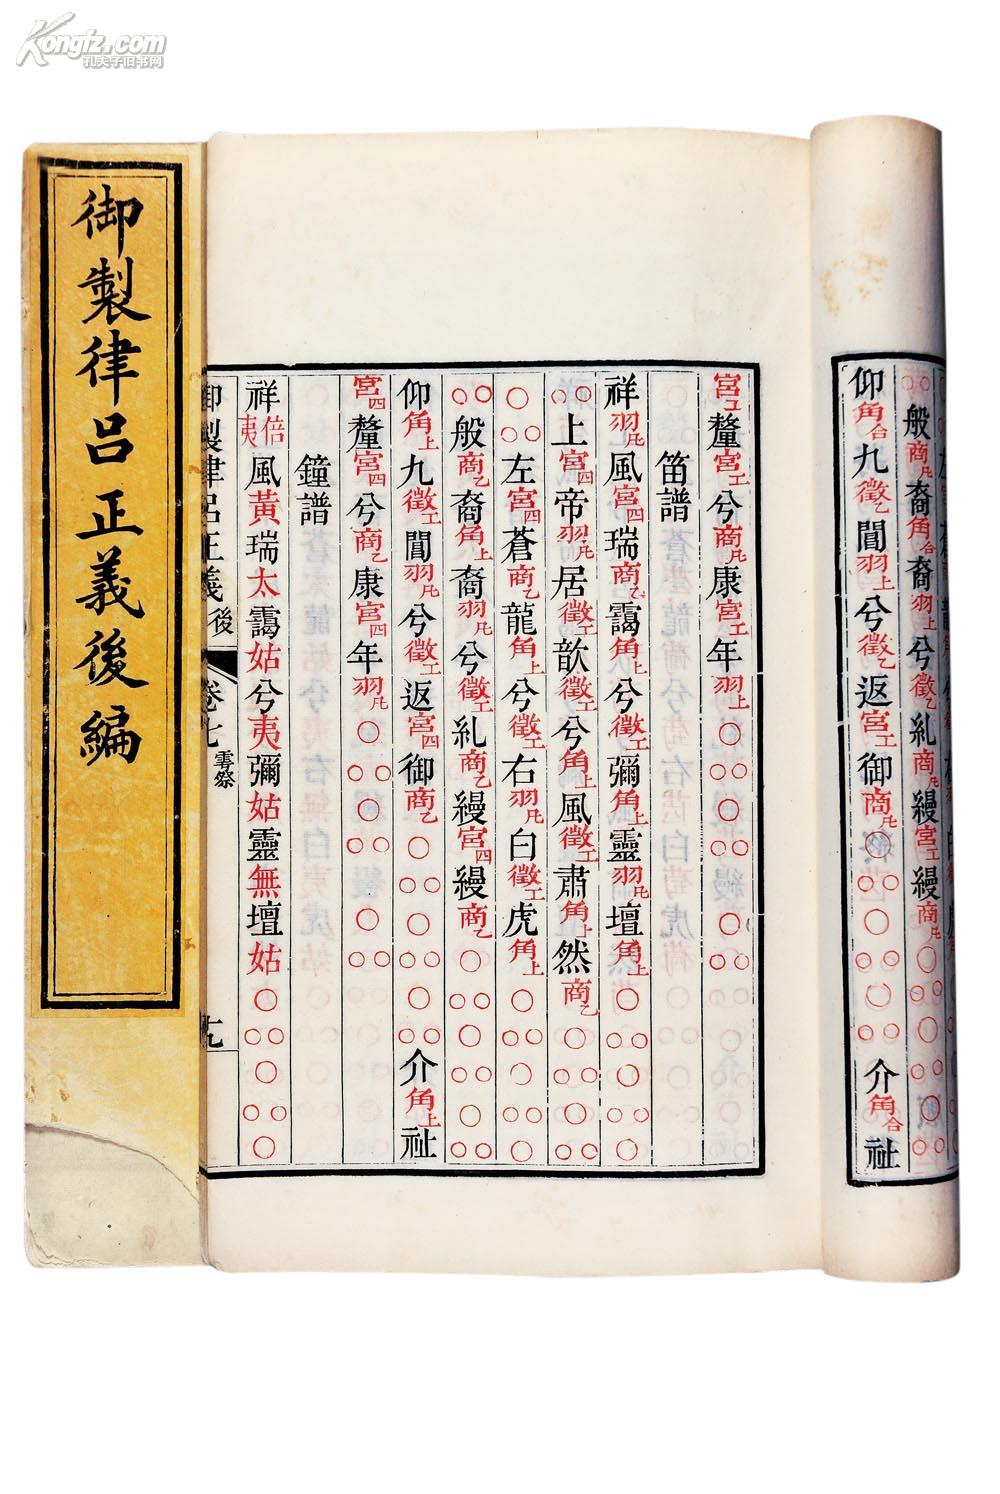 Kongfz.com
孔夫子旧书网
御製律呂正義後編
仰角合九徵乙閶羽上兮徵乙返宮工御商凡○○○○○○○○介角合祉
般商凡裔角合裔羽上兮徵乙糺商凡縵宮工縵商凡
宮工釐宮工兮商凡康宮工年羽上○○○○○○○○○○○○
笛譜
祥羽凡風宮四瑞商乙靄角上兮徵工彌角上靈羽凡壇角上○○○○○○○
○○上宮四帝羽凡居徵工歆徵工兮角上風徵工肅角上然商乙○○○○○○○
○○○左宮四蒼商乙龍角上兮徵工右羽凡白徵工虎角上○○○○○○○
○○○○般商乙裔角上裔羽凡兮徵工糺商乙縵宮四縵商乙○○○○○○○○○
仰角上九徵工閶羽凡兮徵工返宮四御商乙○○○○○○○○介角上祉
宮四釐宮四兮商乙康宮四年羽凡○○○○○○○○○○○○
鐘譜
祥倍夷風黃瑞太靄姑兮夷彌姑靈無壇姑○○○○○○○
御製律呂正義後 卷七 雩祭